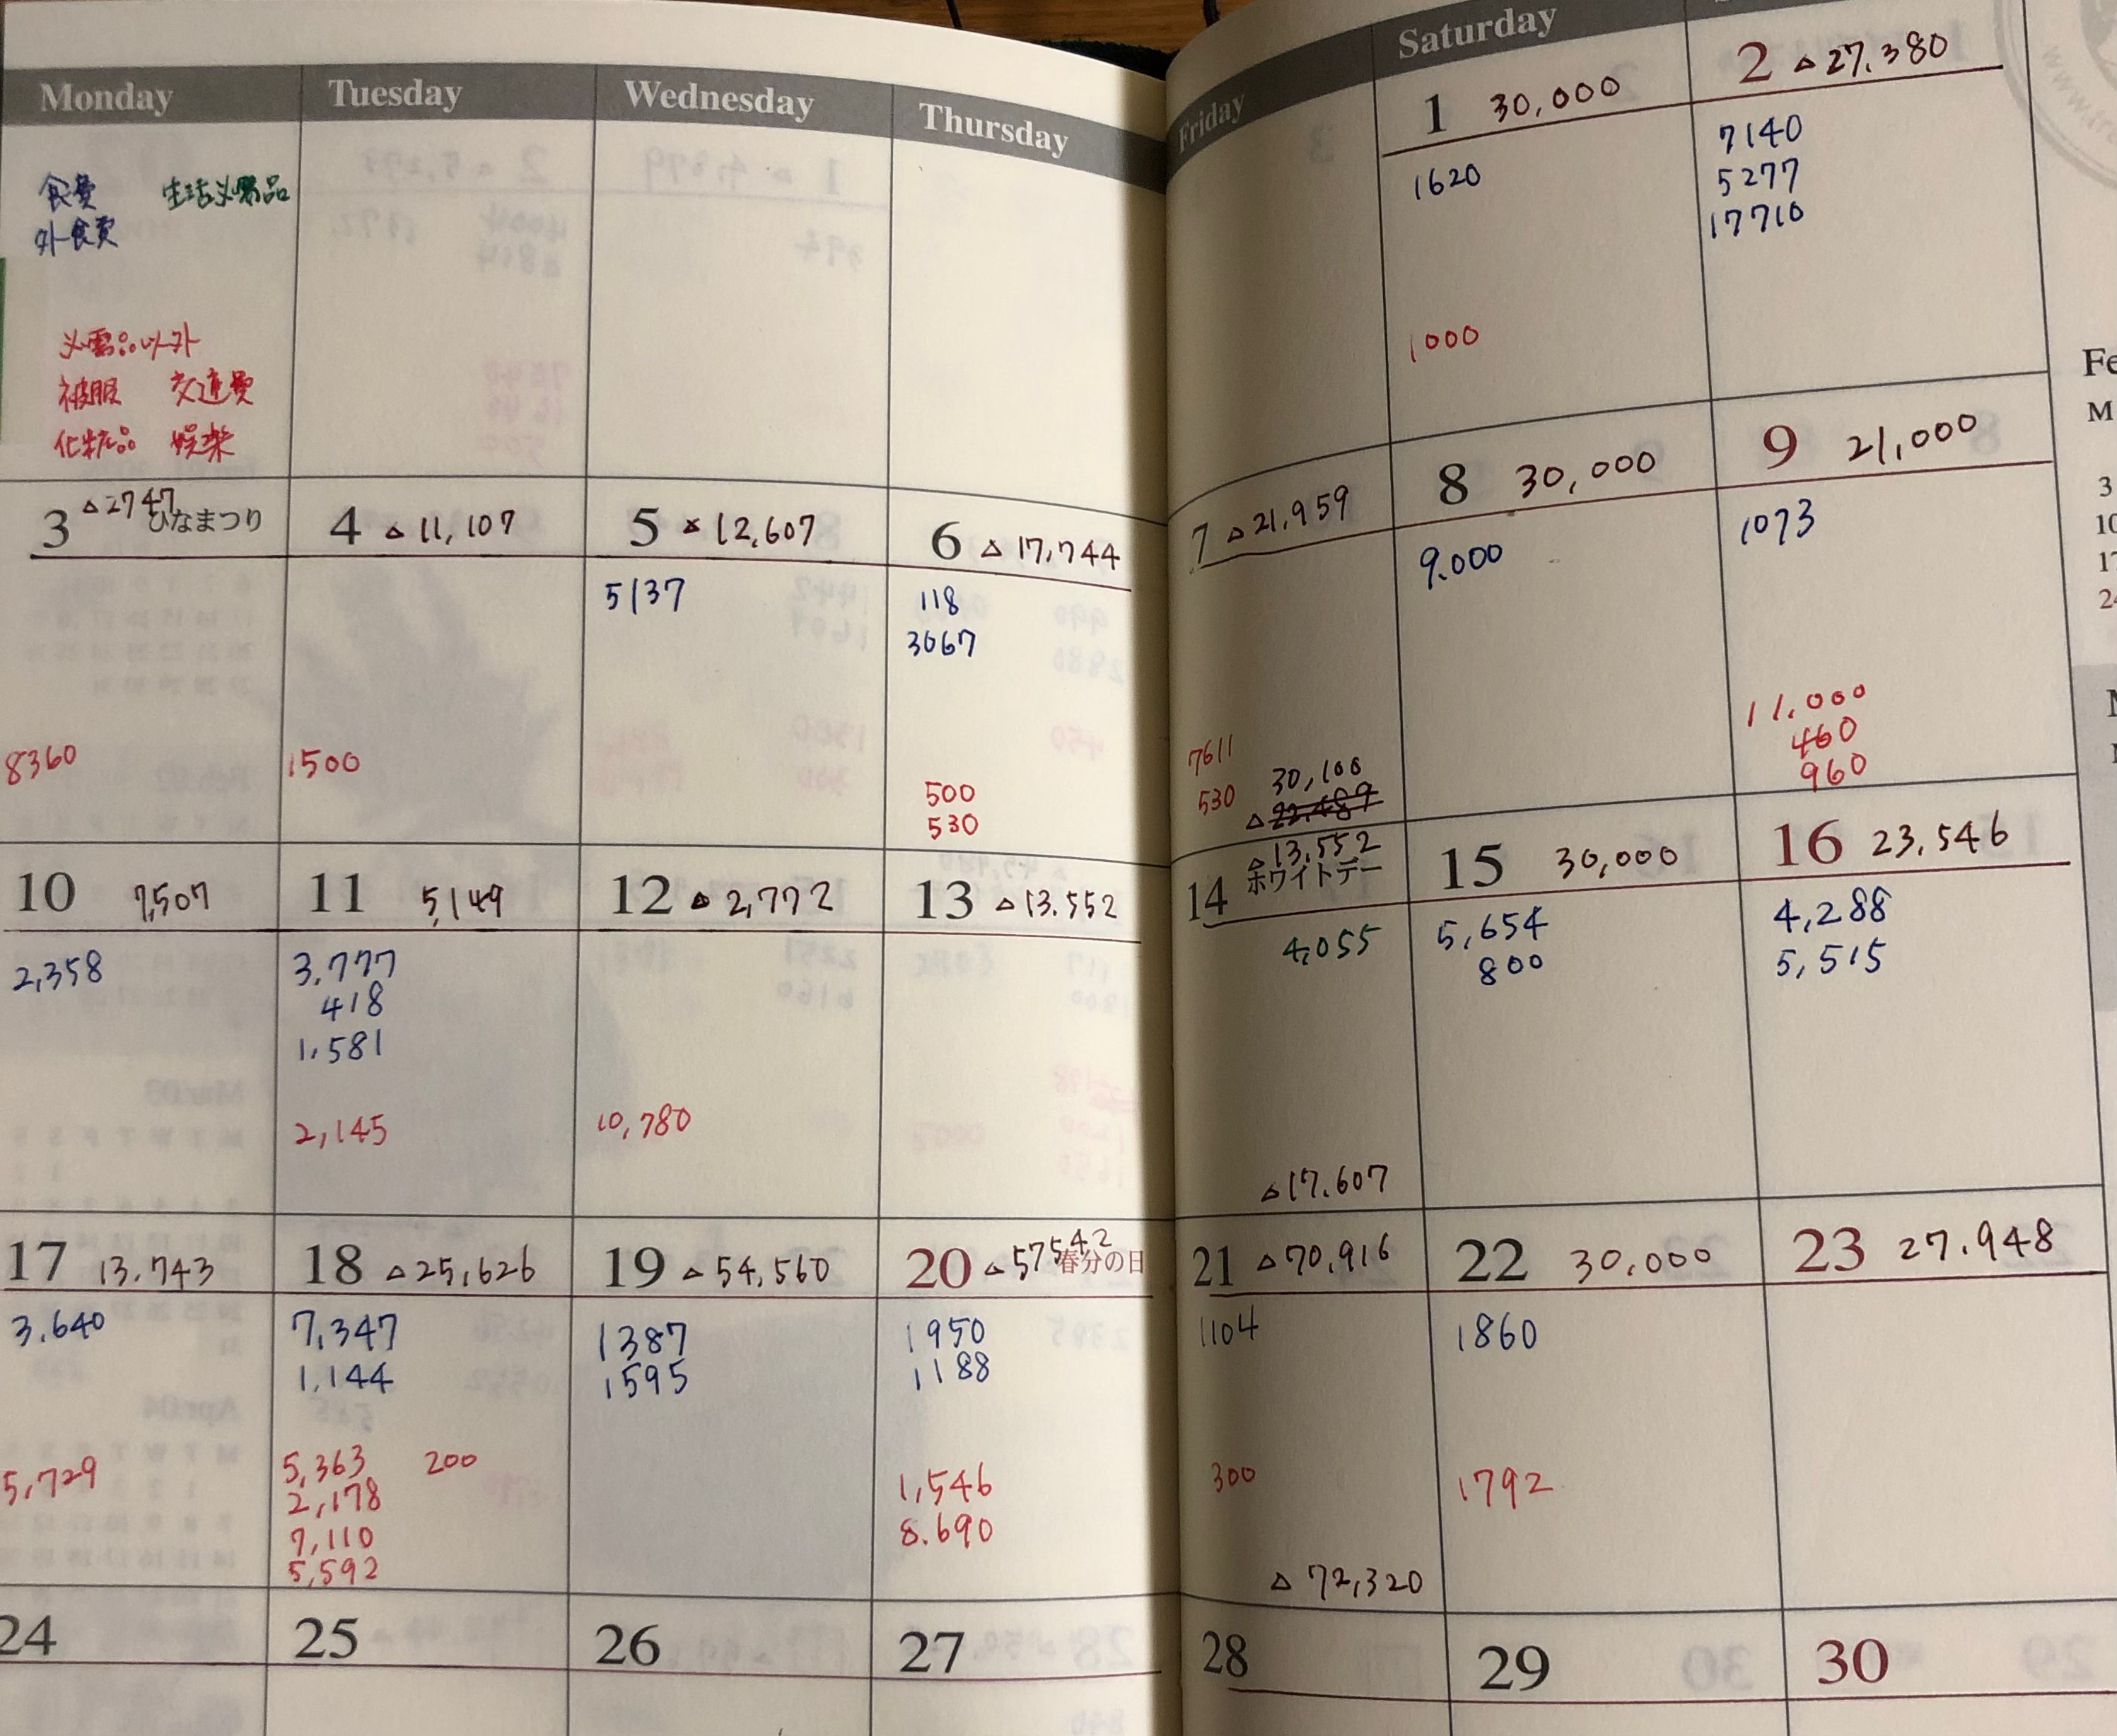 Monday Tuesday Wednesday Thursday Friday Saturday
食費 生活必需品
外食費
必需品以外
被服 交通費
化粧品 娯楽
1 30,000
1620
1000
2 △27,380
7140
5277
17710
3 △2747 ひなまつり
8360
4 △11,107
1500
5 △12,607
5137
6 △17,744
118
3067
500
530
7 △21,959
7611
530
30,100
△22,489
8 30,000
9,000
9 21,000
1073
11,000
460
960
10 7,507
2,358
11 5,149
3,777
418
1,581
2,145
12 △2,772
10,780
13 △13,552
14 △13,552 ホワイトデー
4,055
△17,607
15 30,000
5,654
800
16 23,546
4,288
5,515
17 13,743
3,640
5,729
18 △25,626
7,347
1,144
5,363 200
2,178
7,110
5,592
19 △54,560
1387
1595
20 △57542 春分の日
1950
1188
1,546
8,690
21 △70,916
1104
300
△72,320
22 30,000
1860
1792
23 27,948
24
25
26
27
28
29
30
Fe
M
3
10
17
24